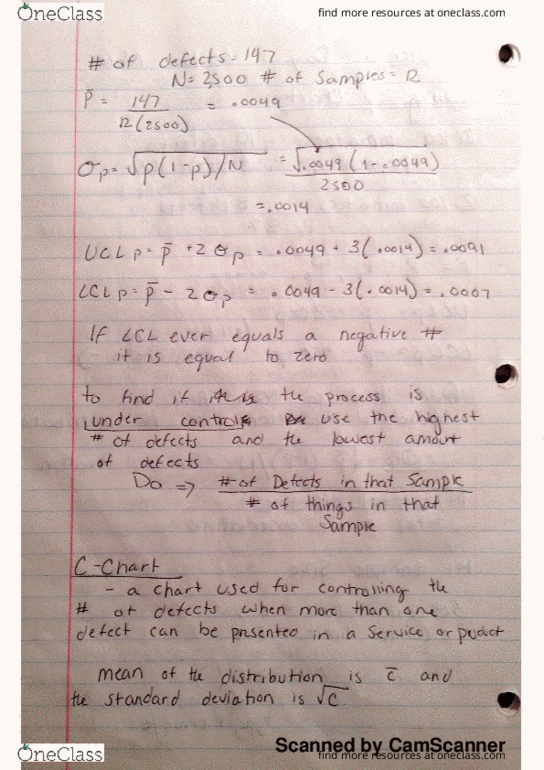 OneClass
find more resources at oneclass.com
# of defects = 147
N= 2,500 # of samples = 12
p̄ = 147 / 12(2500) = .0049
σp = √p(1-p)/N = √.0049(1-.0049) / 2500
= .0014
UCLp = p̄ + 2σp = .0049 + 3(.0014) = .0091
LCLp = p̄ - 2σp = .0049 - 3(.0014) = .0007
If LCL ever equals a negative #
it is equal to zero
to find if the process is
under control use the highest
# of defects and the lowest amount
of defects
Do ⇒ # of Defects in that Sample
# of things in that
Sample
C-Chart
- a chart used for controlling the
# of defects when more than one
defect can be presented in a service or
mean of the distribution is c̄ and
the standard deviation is √c
Scanned by CamScanner
OneClass
find more resources at oneclass.com